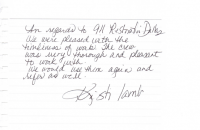 In regards to 911 Restoration Dallas
We were pleased with the
timeliness of work. The crew
was very thorough and pleasant
to work with.
We would use them again and
refer as well.
Lamb